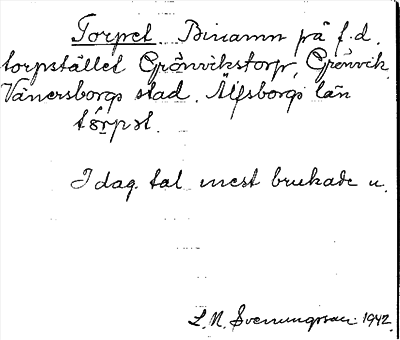 Torpet Binamn på f.d.
torpstället Grönvikstorp, Grönvik,
Vänersborgs stad. Älfsborgs län
tórpət.
I dag. tal mest brukade u.
L. N. Svenungsson 1942.